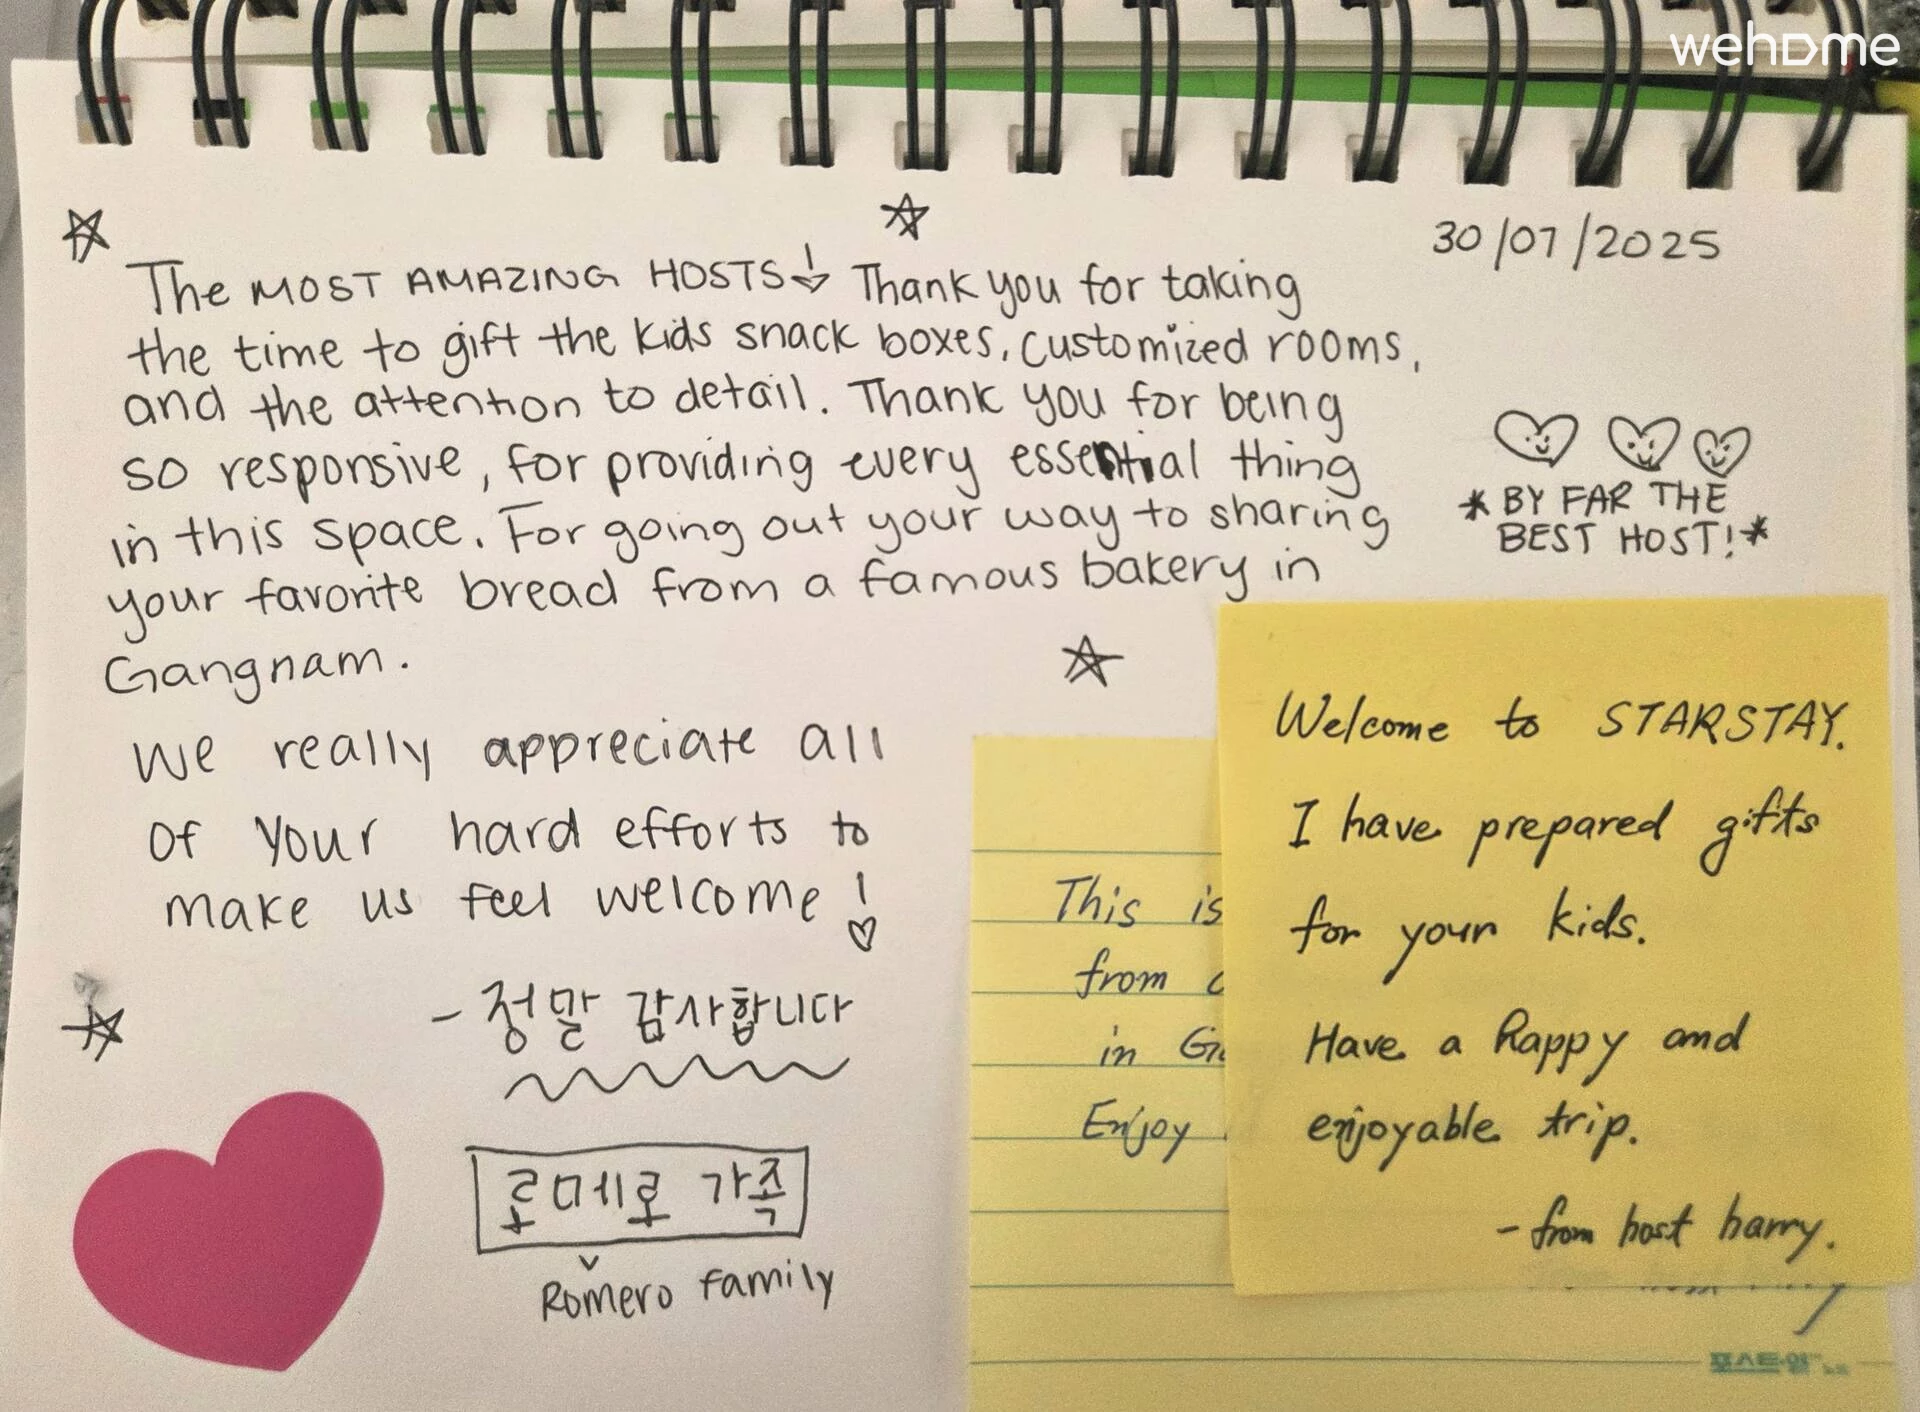 wehome
30/07/2025
The MOST AMAZING HOSTS! Thank you for taking
the time to gift the kids snack boxes, customized rooms,
and the attention to detail. Thank you for being
so responsive, for providing every essential thing
in this space. For going out your way to sharing
your favorite bread from a famous bakery in
Gangnam.
We really appreciate all
of your hard efforts to
make us feel welcome!
- 정말 감사합니다
로메로 가족
Romero family
*BY FAR THE
BEST HOST!*
Welcome to STARSTAY.
I have prepared gifts
for your kids.
Have a happy and
enjoyable trip.
- from host harry.
This is
from
in
Enjoy
포스트잇